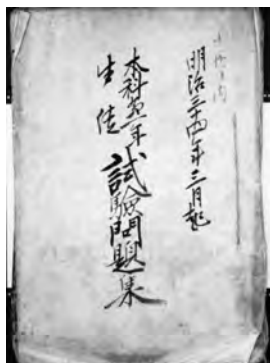 明治三十四年三月起
本科第一年
生徒
試驗問題集